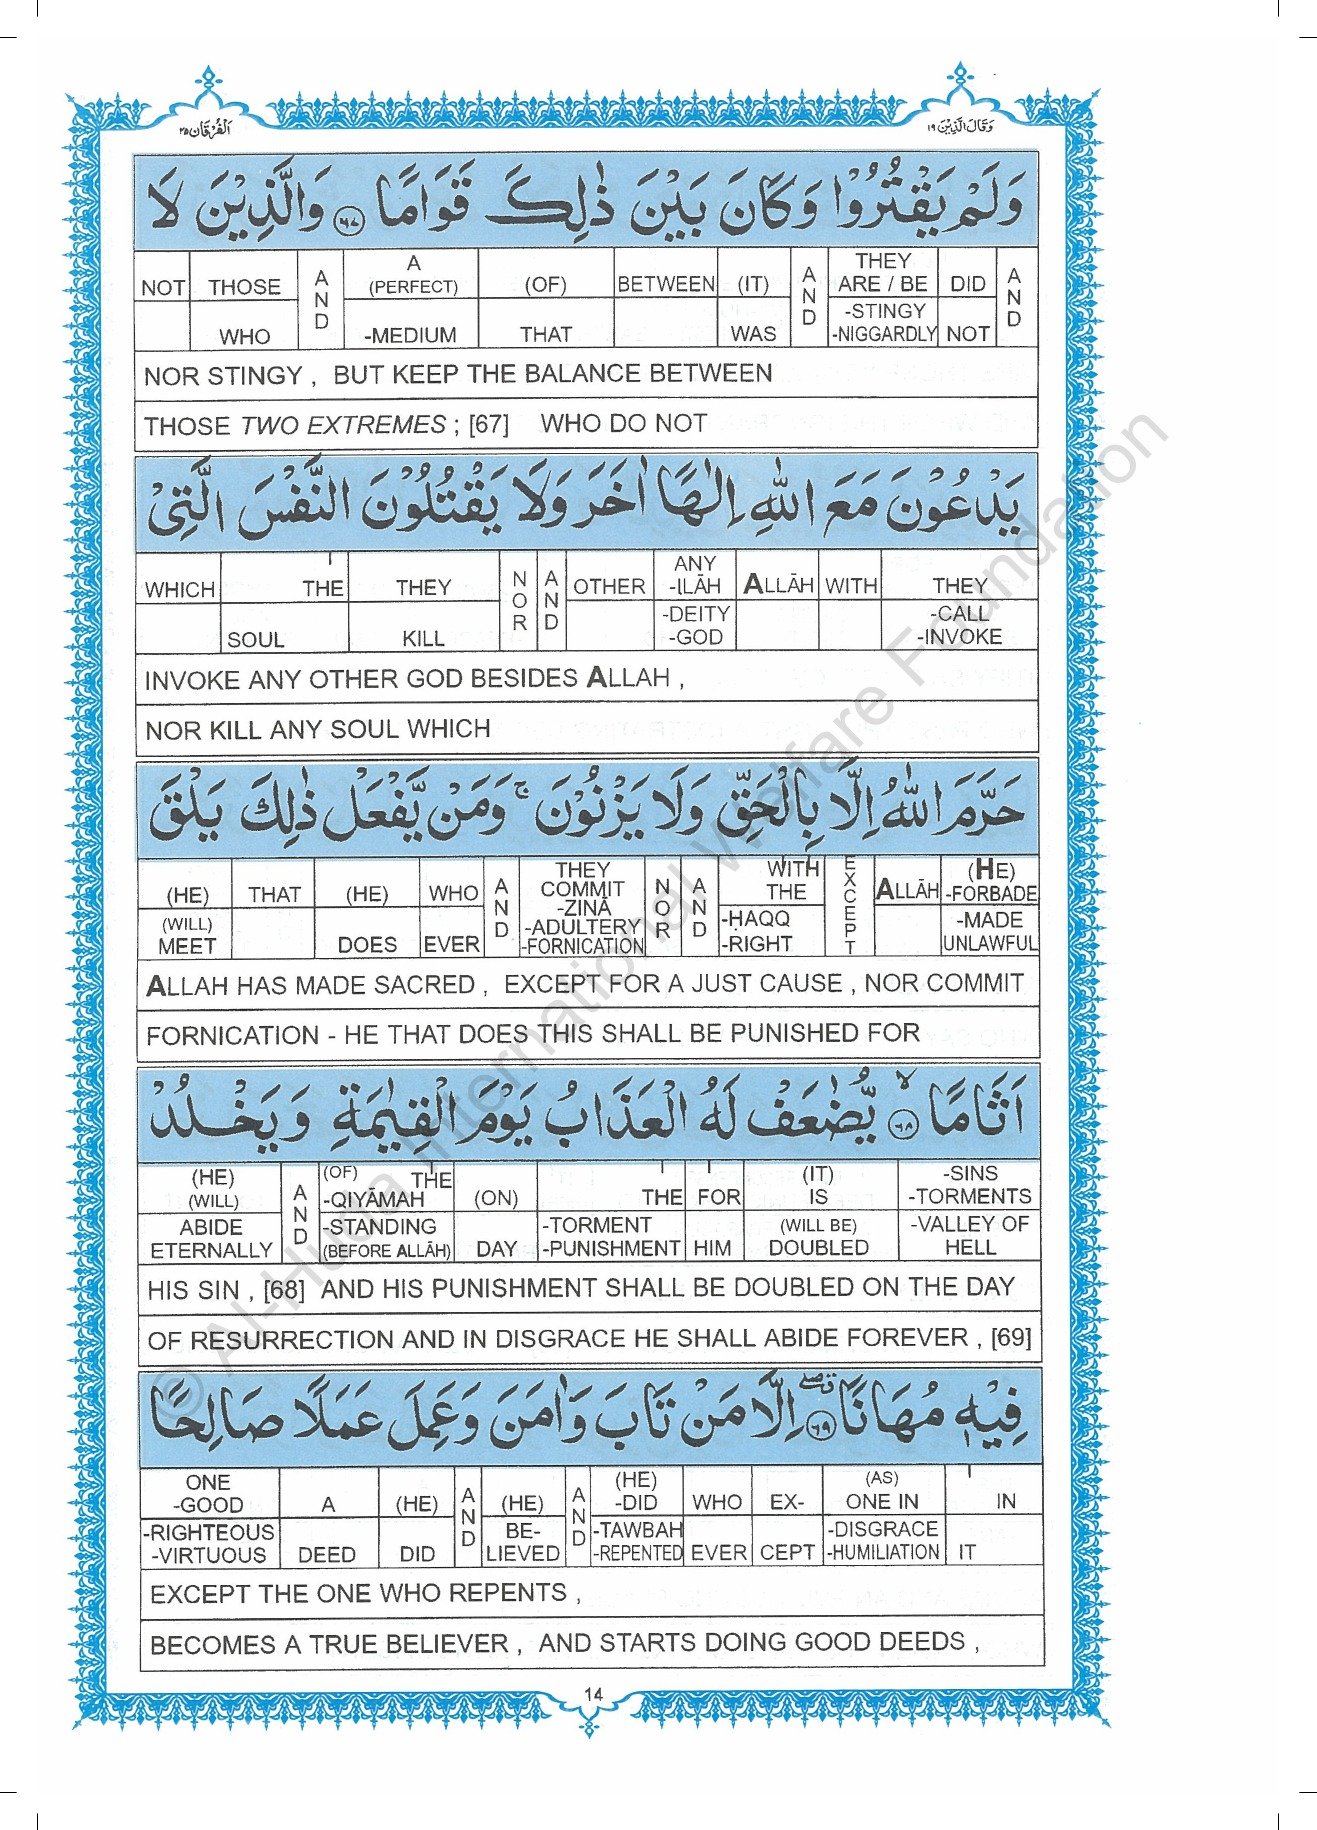 اَلْفُرْقَان ٢٥
وَقَالَ الَّذِيْنَ ١٩
وَلَمْ يَقْتُرُوْا وَكَانَ بَيْنَ ذٰلِكَ قَوَامًا ﴿٦٧﴾ وَالَّذِيْنَ لَا
NOT THOSE AND A (PERFECT) (OF) BETWEEN (IT) AND THEY ARE / BE DID AND
WHO -MEDIUM THAT WAS -STINGY -NIGGARDLY NOT
NOR STINGY , BUT KEEP THE BALANCE BETWEEN
THOSE TWO EXTREMES ; [67] WHO DO NOT
يَدْعُوْنَ مَعَ اللّٰهِ اِلٰهًا اٰخَرَ وَلَا يَقْتُلُوْنَ النَّفْسَ الَّتِىْ
WHICH THE THEY NOR AND OTHER ANY -ILĀH ALLĀH WITH THEY
SOUL KILL -DEITY -GOD -CALL -INVOKE
INVOKE ANY OTHER GOD BESIDES ALLAH ,
NOR KILL ANY SOUL WHICH
حَرَّمَ اللّٰهُ اِلَّا بِالْحَقِّ وَلَا يَزْنُوْنَ ۚ وَمَنْ يَّفْعَلْ ذٰلِكَ يَلْقَ
(HE) THAT (HE) WHO AND THEY COMMIT -ZINĀ -ADULTERY -FORNICATION NOR AND WITH THE EXCEPT ALLĀH (HE) -FORBADE
(WILL) MEET DOES EVER -ḤAQQ -RIGHT -MADE UNLAWFUL
ALLAH HAS MADE SACRED , EXCEPT FOR A JUST CAUSE , NOR COMMIT
FORNICATION - HE THAT DOES THIS SHALL BE PUNISHED FOR
اَثَامًا ﴿٦٨﴾ۙ يُّضٰعَفْ لَهُ الْعَذَابُ يَوْمَ الْقِيٰمَةِ وَيَخْلُدْ
(HE) (WILL) AND (OF) THE -QIYĀMAH (ON) THE FOR (IT) IS -SINS -TORMENTS
ABIDE ETERNALLY -STANDING (BEFORE ALLĀH) DAY -TORMENT -PUNISHMENT HIM (WILL BE) DOUBLED -VALLEY OF HELL
HIS SIN , [68] AND HIS PUNISHMENT SHALL BE DOUBLED ON THE DAY
OF RESURRECTION AND IN DISGRACE HE SHALL ABIDE FOREVER , [69]
فِيْهٖ مُهَانًا ﴿٦٩﴾ اِلَّا مَنْ تَابَ وَاٰمَنَ وَعَمِلَ عَمَلًا صَالِحًا
ONE -GOOD A (HE) AND (HE) AND (HE) -DID WHO EX- (AS) ONE IN IN
-RIGHTEOUS -VIRTUOUS DEED DID BE- LIEVED -TAWBAH -REPENTED EVER CEPT -DISGRACE -HUMILIATION IT
EXCEPT THE ONE WHO REPENTS ,
BECOMES A TRUE BELIEVER , AND STARTS DOING GOOD DEEDS ,
14
© Al-Huda International Welfare Foundation